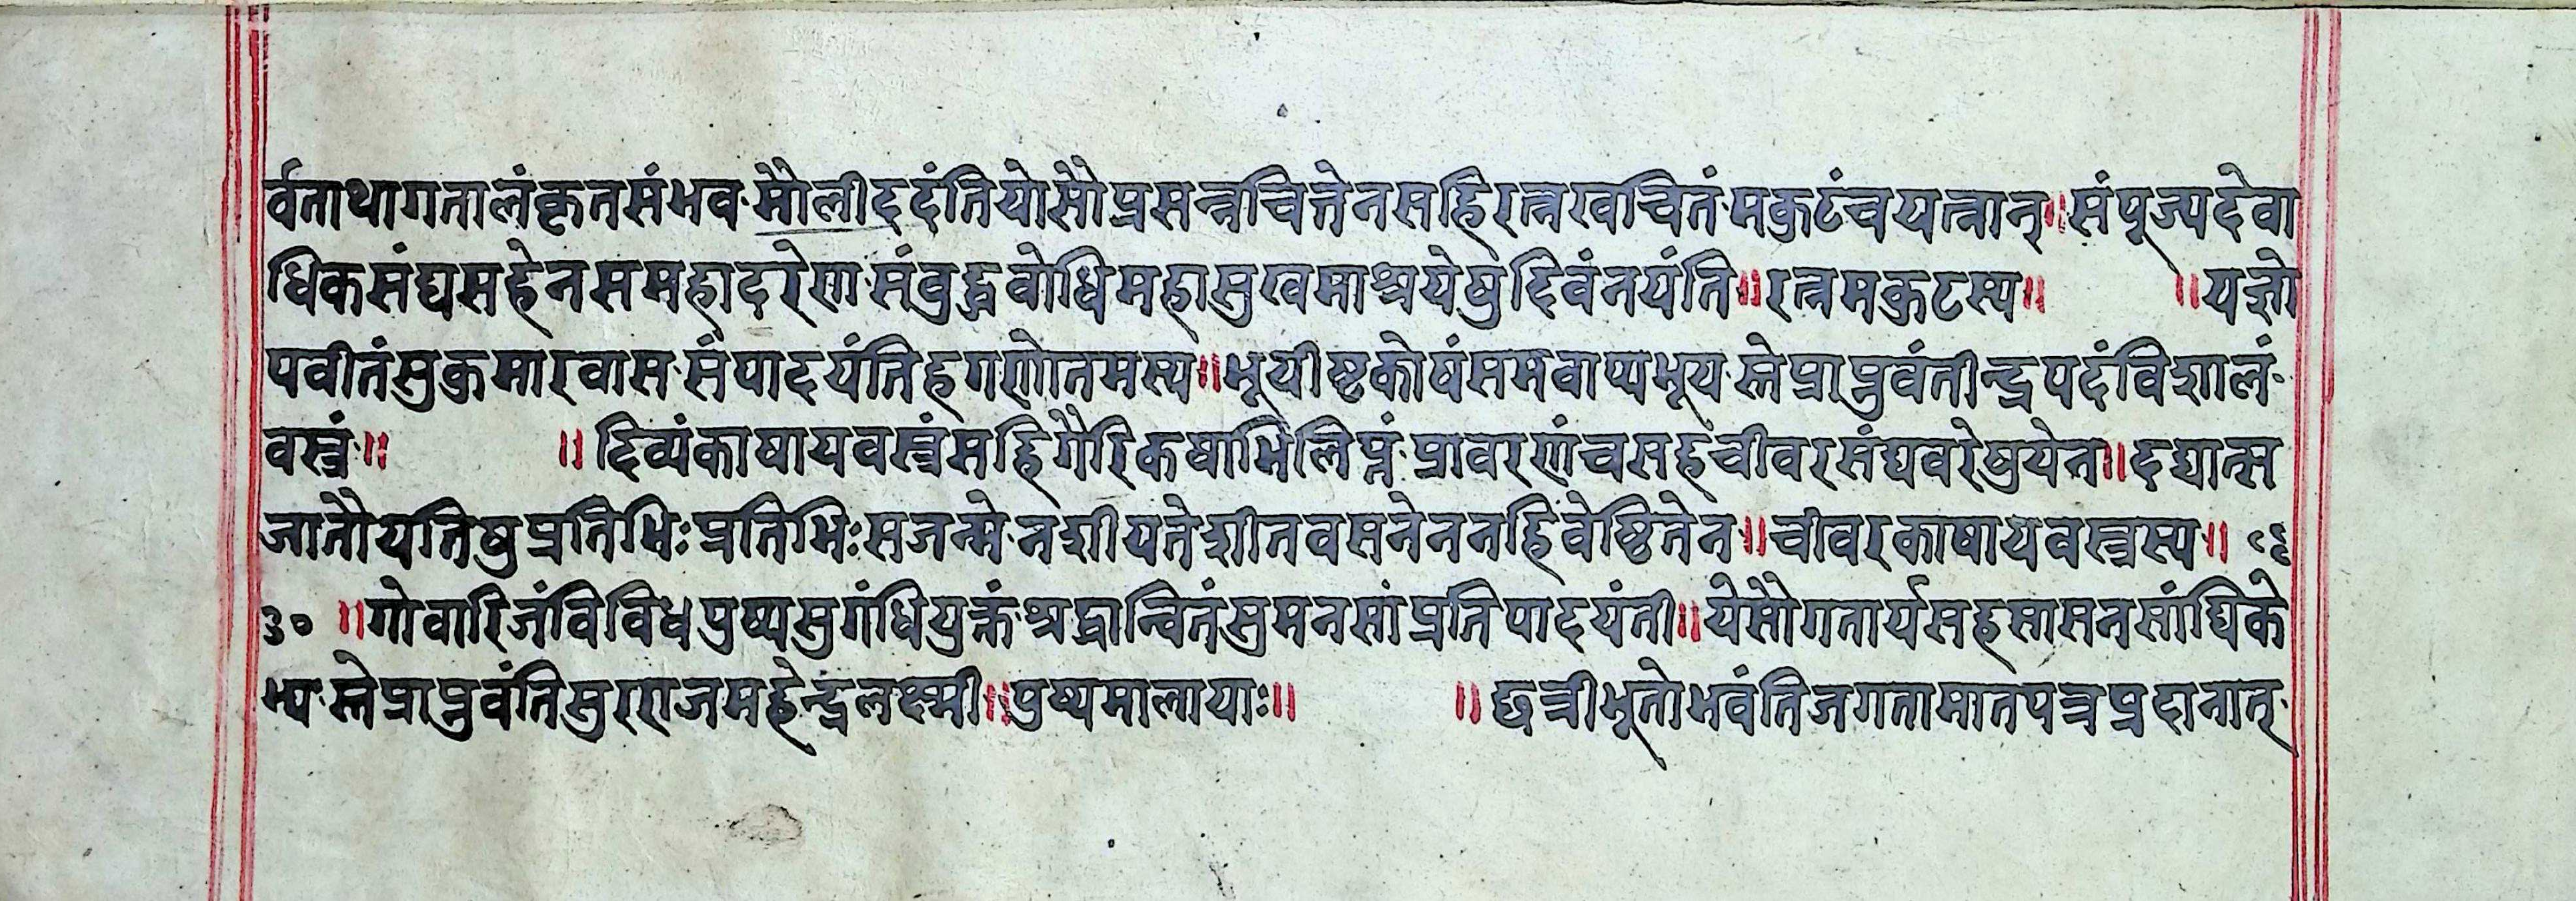 र्वतथागतालंकृतसंभव·मौलीददंतियोसौप्रसन्नचित्तेनसहिरत्नखचितं·मकुटंचयत्नात्॥संपूज्यदेवा
धिकसंघसहेनसमहादरेण·संबुद्धबोधिमहासुखमाश्रयेषुदिवंनयंति॥रत्नमकुटस्य॥ ॥यज्ञो
पवीतंसुकुमारवास·संपादयंतिहगणोतमस्य॥भूयीष्टकोषंसमवाप्यभूय·स्तेप्राप्नुवंतीन्द्रपदंविशालं·
वस्त्रं·॥ ॥दिव्यंकाषायवस्त्रंसहिगैरिकषाभिलिप्तं·प्रावरणंचसहचीवरसंघवरेषुयेन॥दद्यात्स
जातौयतिषुप्रतिभिःप्रतिभिःसजन्मे·नशीयतेशीतवसनेननहिवेष्टितेन॥चीवरकाषायवस्त्रस्य॥ ८६
३० ॥गोवारिजंविविधपुष्पसुगंधियुक्तं·श्रद्धान्वितंसुमनसांप्रतिपादयंती॥येसौगतार्यसहसासनसांघिके
भ्य·स्तेप्राप्नुवंतिसुरराजमहेन्द्रलक्ष्मी॥पुष्पमालायाः॥ ॥छत्रीभूतोभवंतिजगतामातपत्रप्रदानात्·